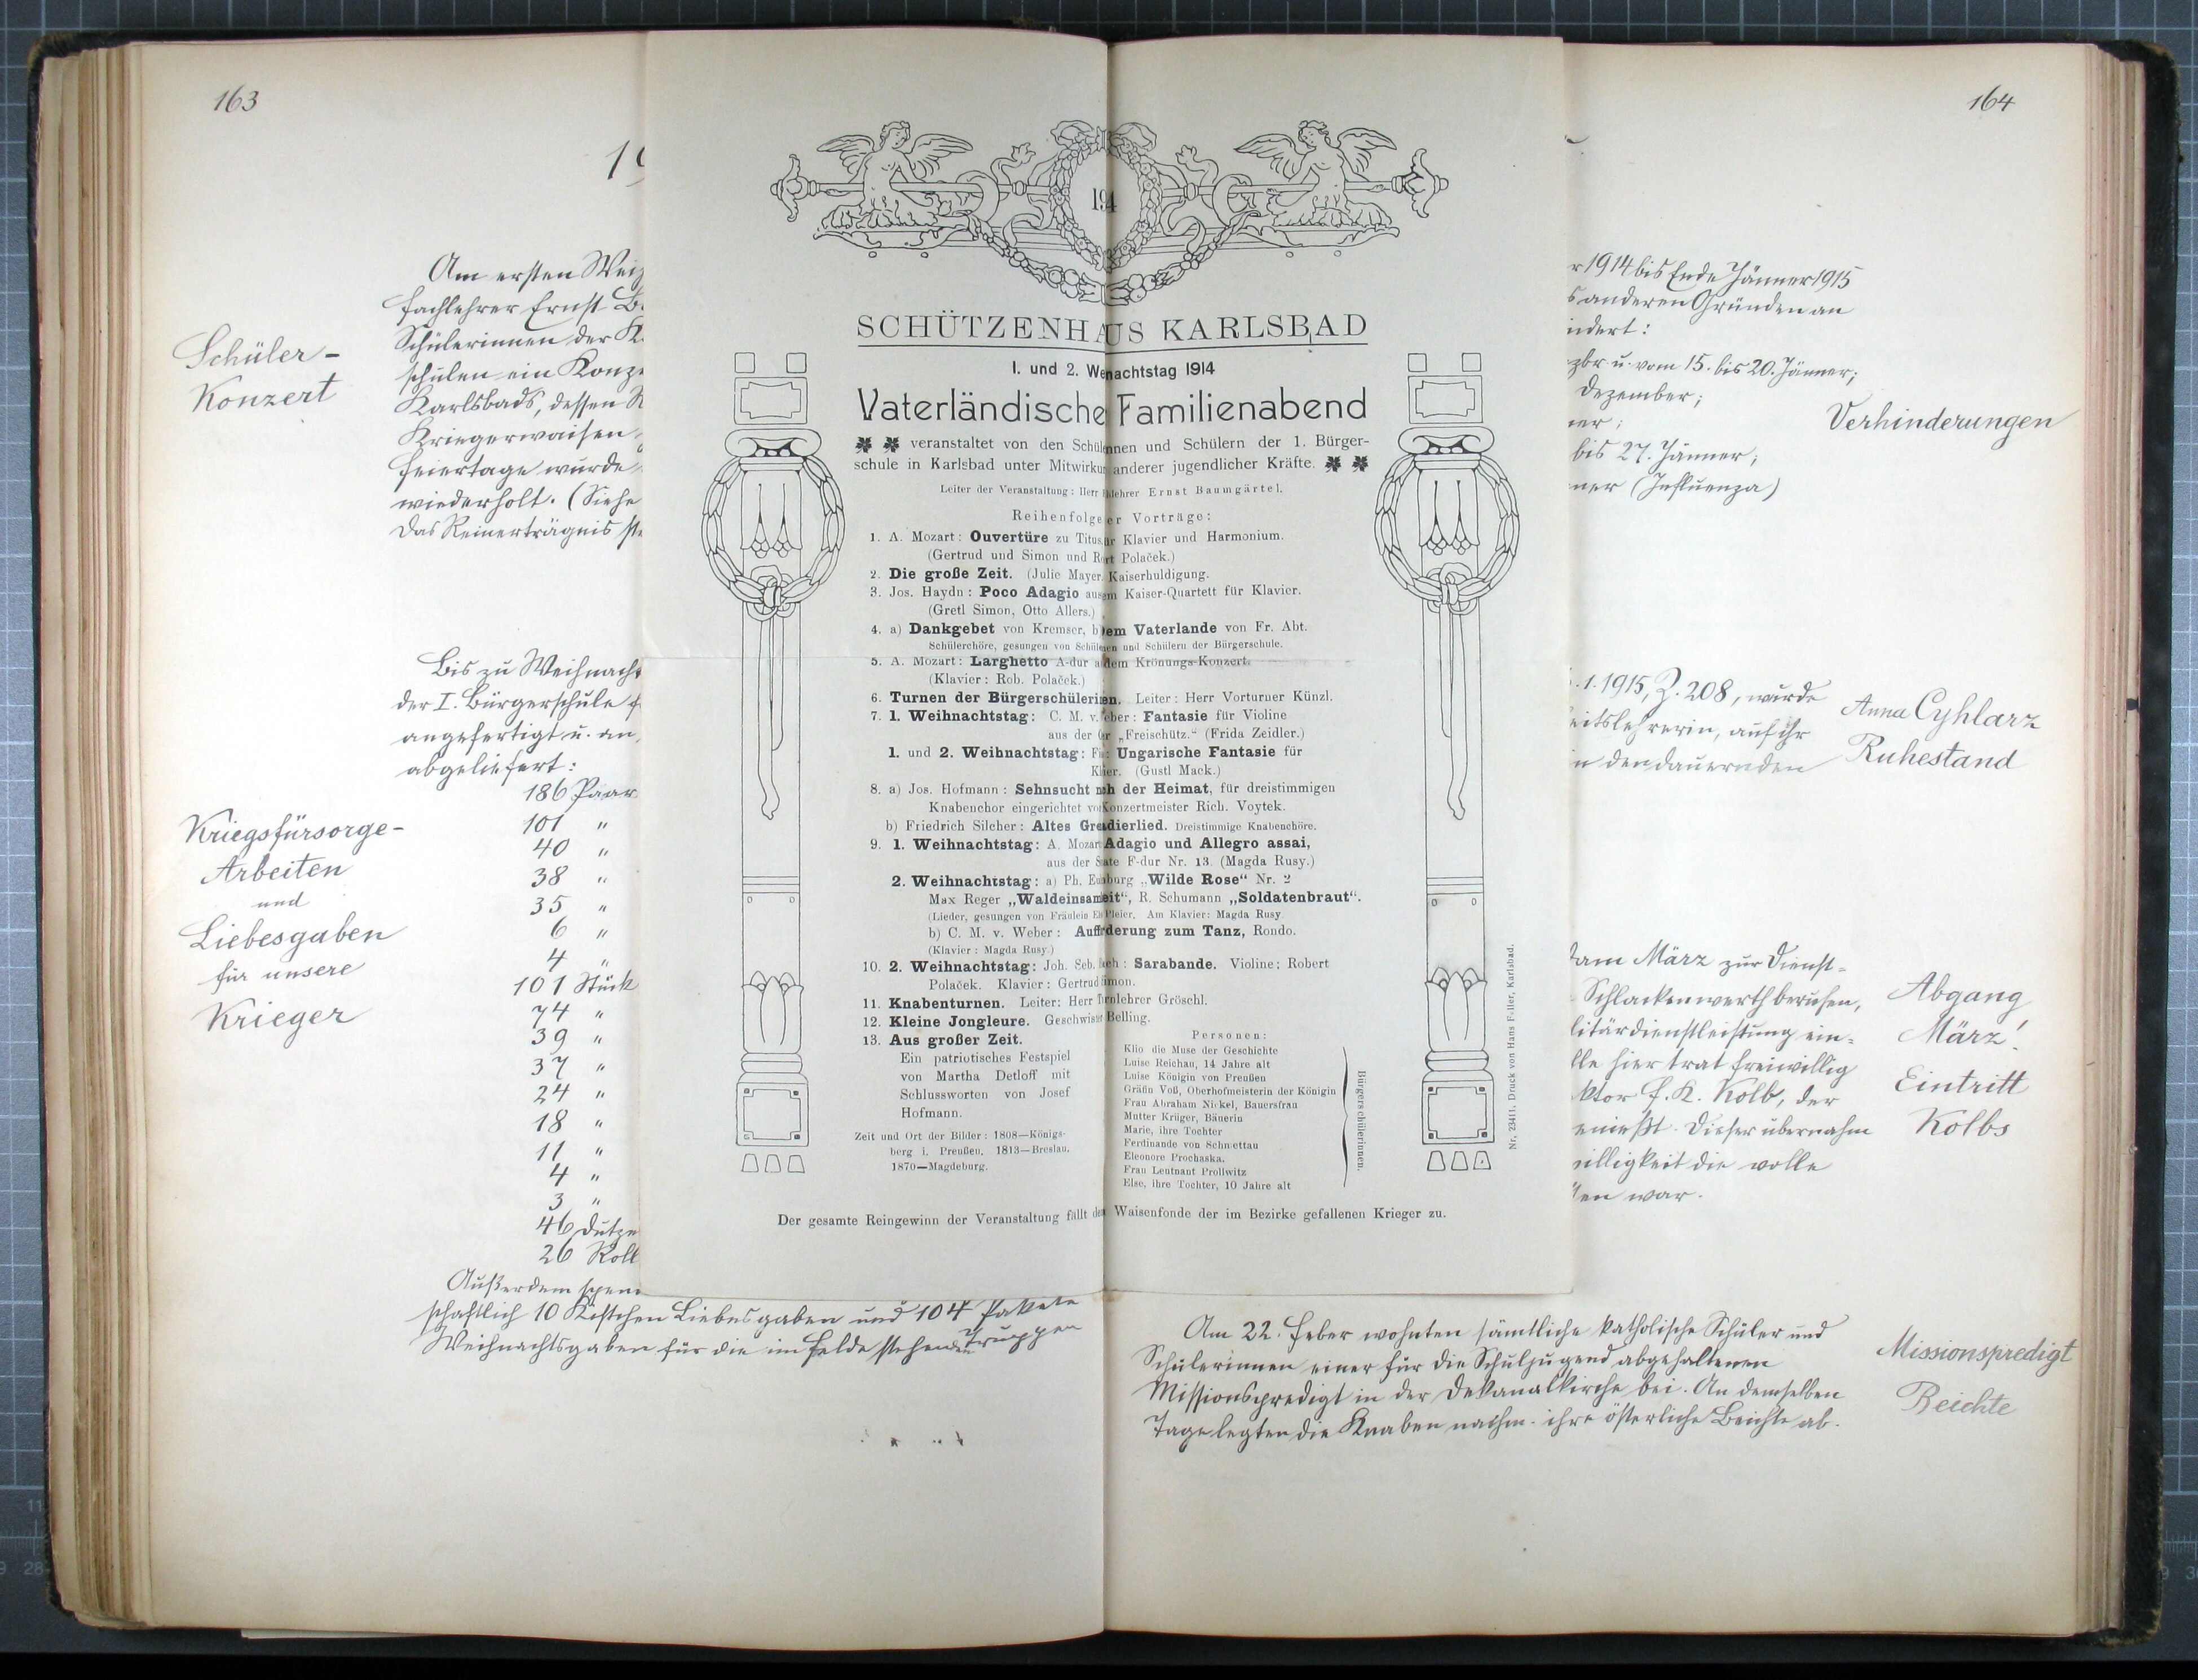 163
19
Am ersten Wei
Fachlehrer Ernst B
Schülerinnen der K
schulen ein Konze
Karlsbads, dessen R
Kriegerwaisen
feiertage wurde
wiederholt. (Siehe
Das Reinerträgnis
Schüler-
Konzert
Bis zu Weihnacht
der I. Bürgerschule
angefertigt u. an
abgeliefert:
186 Paar
101 "
40 "
38 "
35 "
6 "
4 "
101 Stück
74 "
39 "
37 "
24 "
18 "
11 "
4 "
3 "
46 Dutze
26 Roll
Kriegsfürsorge-
Arbeiten
und
Liebesgaben
für unsere
Krieger
Außerdem spen
schaftlich 10 Kistchen Liebesgaben und 104 Pakete
Weihnachtsgaben für die im Felde stehenden Truppen
194
SCHÜTZENHAUS KARLSBAD
1. und 2. Wenachtstag 1914
Vaterländische Familienabend
veranstaltet von den Schülennen und Schülern der 1. Bürger-
schule in Karlsbad unter Mitwirkun anderer jugendlicher Kräfte.
Leiter der Veranstaltung: Herr hlehrer Ernst Baumgärtel.
Reihenfolge er Vorträge:
1. A. Mozart: Ouvertüre zu Titus, ür Klavier und Harmonium.
(Gertrud und Simon und Rort Polaček.)
2. Die große Zeit. (Julie Mayer. Kaiserhuldigung.
3. Jos. Haydn: Poco Adagio aus em Kaiser-Quartett für Klavier.
(Gretl Simon, Otto Allers.)
4. a) Dankgebet von Kremser, b) em Vaterlande von Fr. Abt.
Schülerchöre, gesungen von Schülenen und Schülern der Bürgerschule.
5. A. Mozart: Larghetto A-dur a dem Krönungs-Konzert.
(Klavier: Rob. Polaček.)
6. Turnen der Bürgerschülerinen. Leiter: Herr Vorturner Künzl.
7. 1. Weihnachtstag: C. M. v. eber: Fantasie für Violine
aus der er „Freischütz.“ (Frida Zeidler.)
1. und 2. Weihnachtstag: F : Ungarische Fantasie für
Klier. (Gustl Mack.)
8. a) Jos. Hofmann: Sehnsucht nch der Heimat, für dreistimmigen
Knabenchor eingerichtet von Konzertmeister Rich. Voytek.
b) Friedrich Silcher: Altes Grendierlied. Dreistimmige Knabenchöre.
9. 1. Weihnachtstag: A. Mozart Adagio und Allegro assai,
aus der Snate F-dur Nr. 13. (Magda Rusy.)
2. Weihnachtstag: a) Ph. Eunburg „Wilde Rose“ Nr. 2
Max Reger „Waldeinsamkeit“, R. Schumann „Soldatenbraut“.
(Lieder, gesungen von Fräulein Els Pleier. Am Klavier: Magda Rusy
b) C. M. v. Weber: Auffrderung zum Tanz, Rondo.
(Klavier: Magda Rusy.)
10. 2. Weihnachtstag: Joh. Seb. Bach: Sarabande. Violine: Robert
Polaček. Klavier: Gertrud Simon.
11. Knabenturnen. Leiter: Herr Turnlehrer Gröschl.
12. Kleine Jongleure. Geschwister Belling.
13. Aus großer Zeit.
Ein patriotisches Festspiel
von Martha Detloff mit
Schlussworten von Josef
Hofmann.
Zeit und Ort der Bilder: 1808—Königs-
berg i. Preußen. 1813—Breslau.
1870—Magdeburg.
Personen:
Klio die Muse der Geschichte
Luise Reichau, 14 Jahre alt
Luise Königin von Preußen
Gräfin Voß, Oberhofmeisterin der Königin
Frau Abraham Nickel, Bauersfrau
Mutter Krüger, Bäuerin
Marie, ihre Tochter
Ferdinande von Schmettau
Eleonore Prochaska.
Frau Leutnant Prollwitz
Else, ihre Tochter, 10 Jahre alt
Bürgerschülerinnen.
Der gesamte Reingewinn der Veranstaltung fällt dem Waisenfonde der im Bezirke gefallenen Krieger zu.
Nr. 23411, Druck von Hans Feller, Karlsbad.
164
r 1914 bis Ende Jänner 1915
s anderen Gründen an
indert:
zbr u. vom 15. bis 20. Jänner;
Dezember;
ner;
bis 27. Jänner;
ner (Influenza)
Verhinderungen
.1.1915, Z. 208, wurde
eitslehrerin, auf ihr
n den dauernden
Anna Cyhlarz
Ruhestand
am März zur Dienst-
Schlackenwerth berufen,
litärdienstleistung ein-
lle hier trat freiwillig
ktor F. K. Kolb, der
enießt. Dieser übernahm
willigkeit die volle
ten war.
Abgang
März!
Eintritt
Kolbs
Am 22. Feber wohnten sämtliche katholische Schüler und
Schülerinnen einer für die Schuljugend abgehaltenen
Missionspredigt in der Dekanalkirche bei. An demselben
Tage legten die Knaben nachm. ihre österliche Beichte ab.
Missionspredigt
Beichte